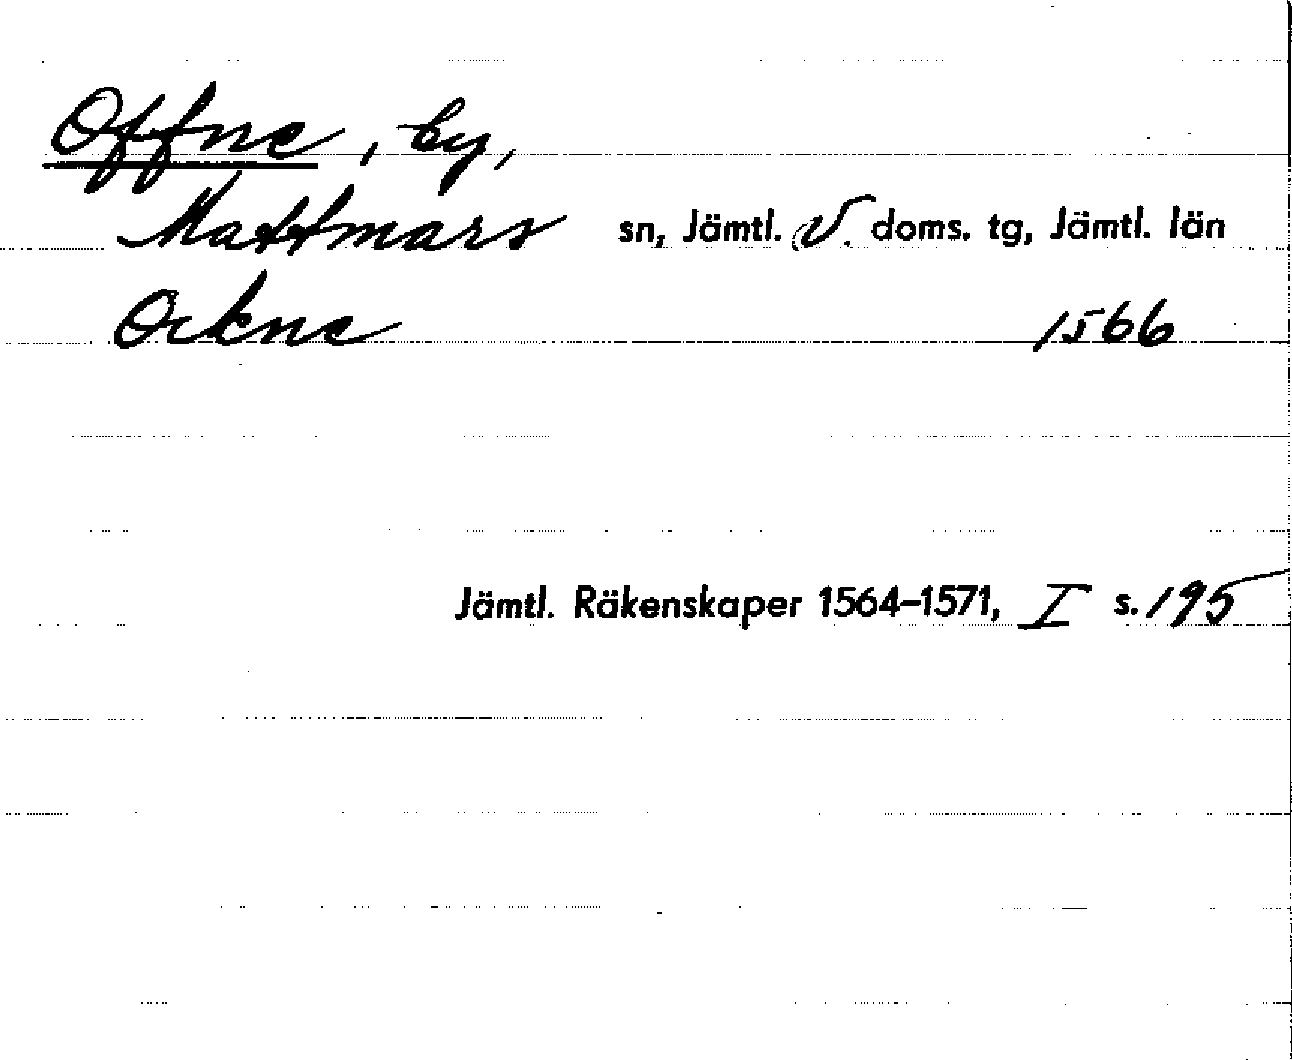 Offne, by,
Mattmars sn, Jämtl. V. doms. tg, Jämtl. län
Ockne 1566
Jämtl. Räkenskaper 1564–1571, I s. 195